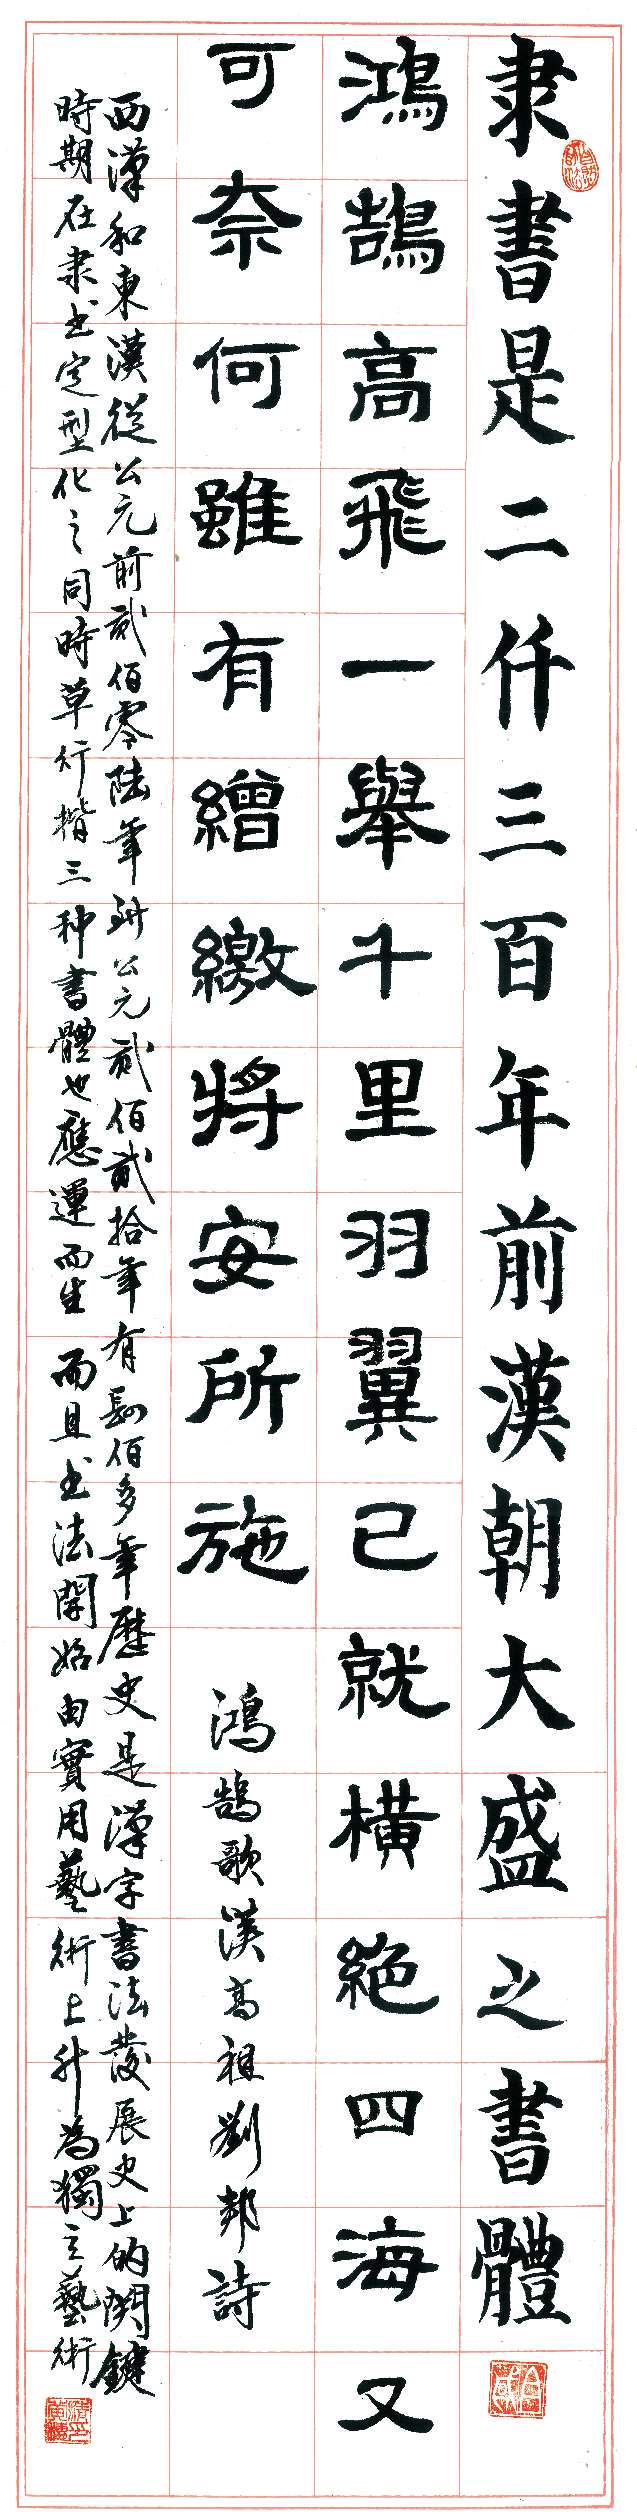 隶書是二仟三百年前漢朝大盛之書體
鴻鵠高飛一舉千里羽翼已就橫絕四海又
可奈何雖有繒繳將安所施
鴻鵠歌漢高祖劉邦詩
西漢和東漢從公元前貳佰零陸年到公元貳佰貳拾年有肆佰多年歷史是漢字書法發展史上的関鍵
時期在隶书定型化之同時草行楷三种書體也應運而生而且书法開始由實用藝術上升為獨立藝術